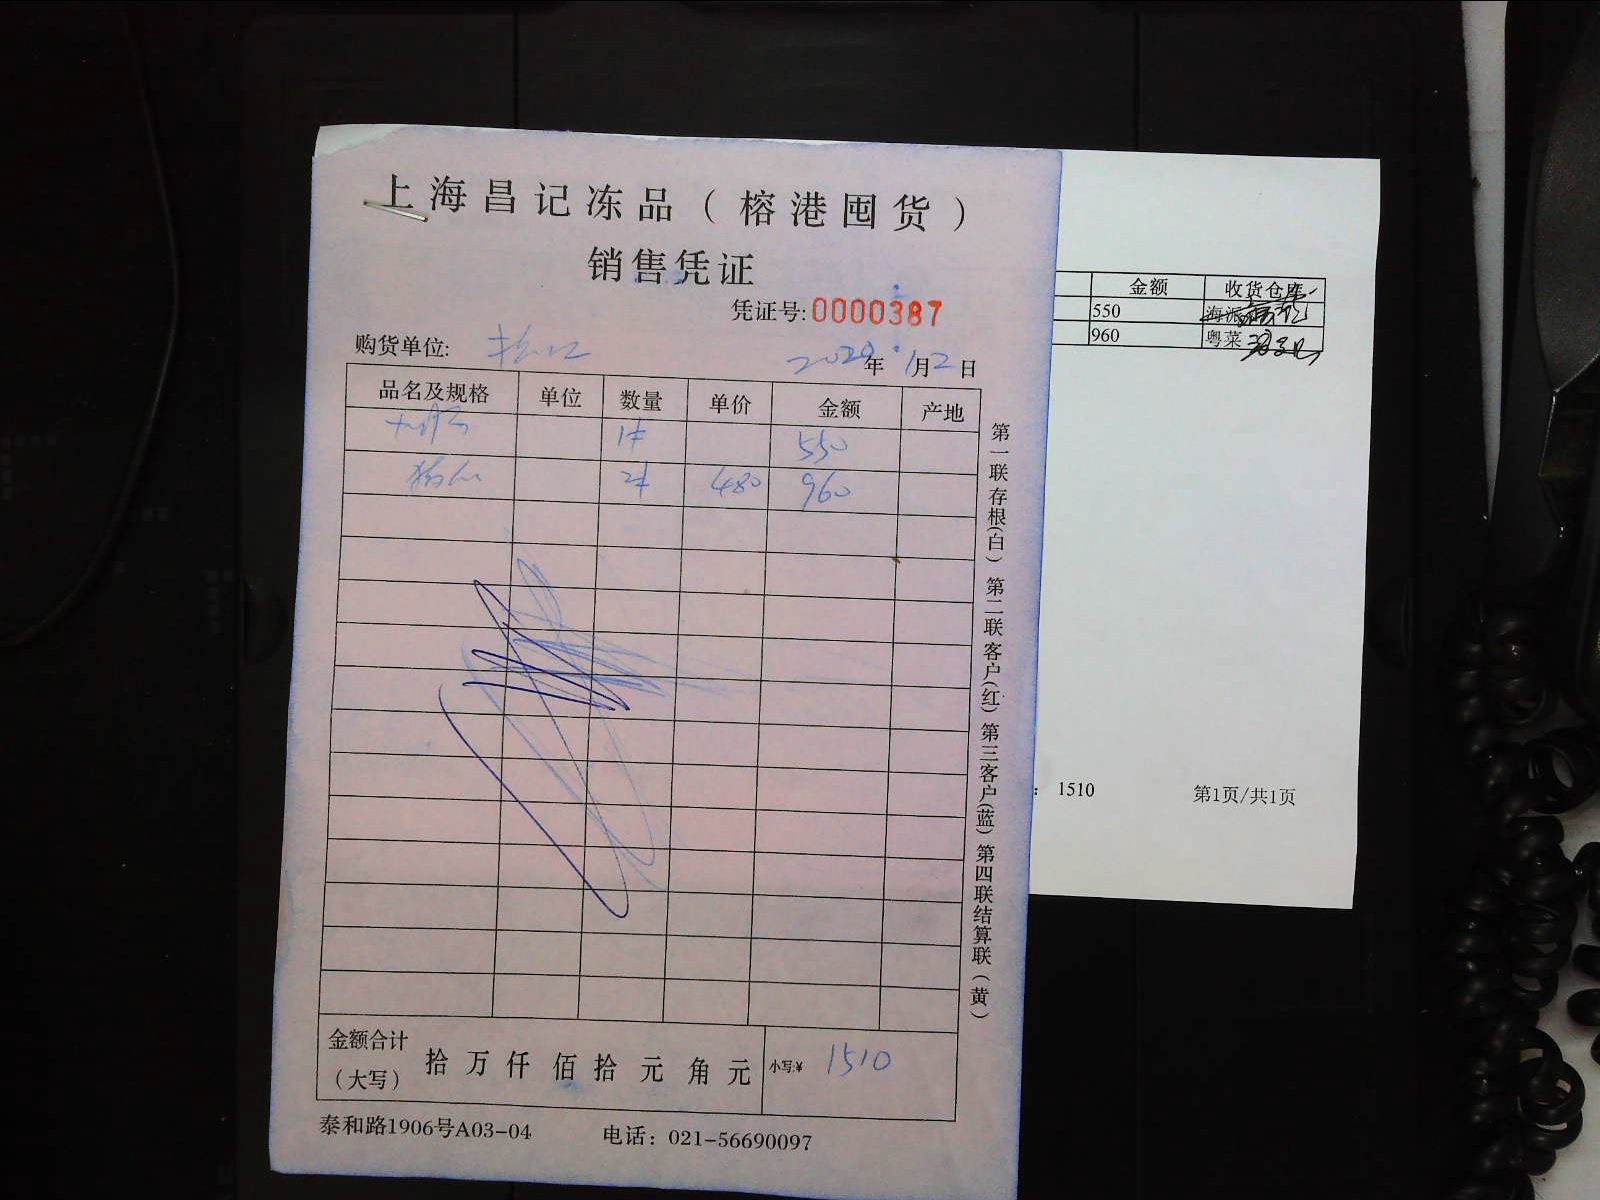 上海昌记冻品（榕港囤货）
销售凭证
凭证号:0000387
购货单位:
年 1月2日
品名及规格 单位 数量 单价 金额 产地
1件 550
2件 480 960
第一联存根(白) 第二联客户(红) 第三客户(蓝) 第四联结算联(黄)
金额合计
（大写） 拾 万 仟 佰 拾 元 角 元 小写:¥ 1510
泰和路1906号A03-04 电话：021-56690097
金额 收货仓库
550 海派
960 粤菜
：1510 第1页/共1页